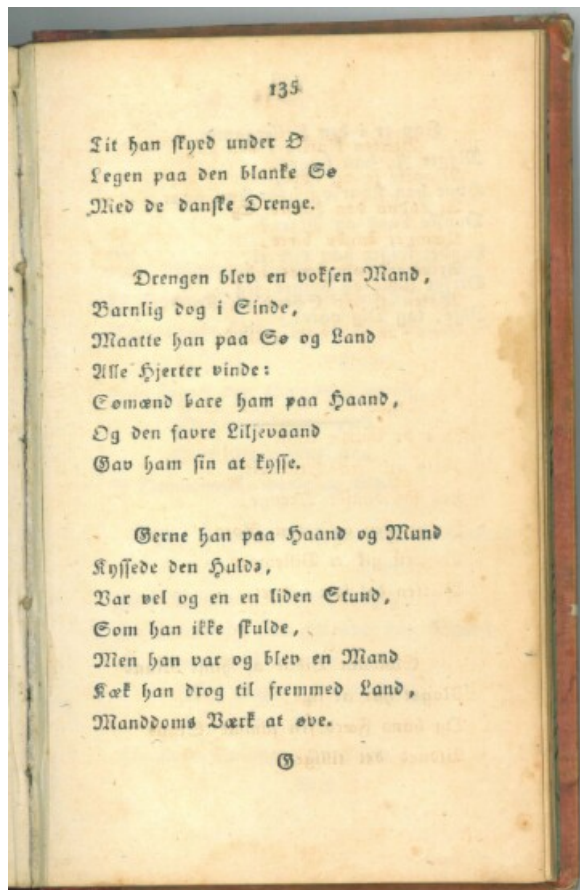 135
Tit han skyed under Ø
Legen paa den blanke Sø
Med de danske Drenge.
Drengen blev en voksen Mand,
Barnlig dog i Sinde,
Maatte han paa Sø og Land
Alle Hjerter vinde:
Sømænd bare ham paa Haand,
Og den favre Liljevaand
Gav ham sin at kysse.
Gerne han paa Haand og Mund
Kyssede den Hulde,
Var vel og en en liden Stund,
Som han ikke skulde,
Men han var og blev en Mand
Kæk han drog til fremmed Land,
Manddoms Værk at øve.
G